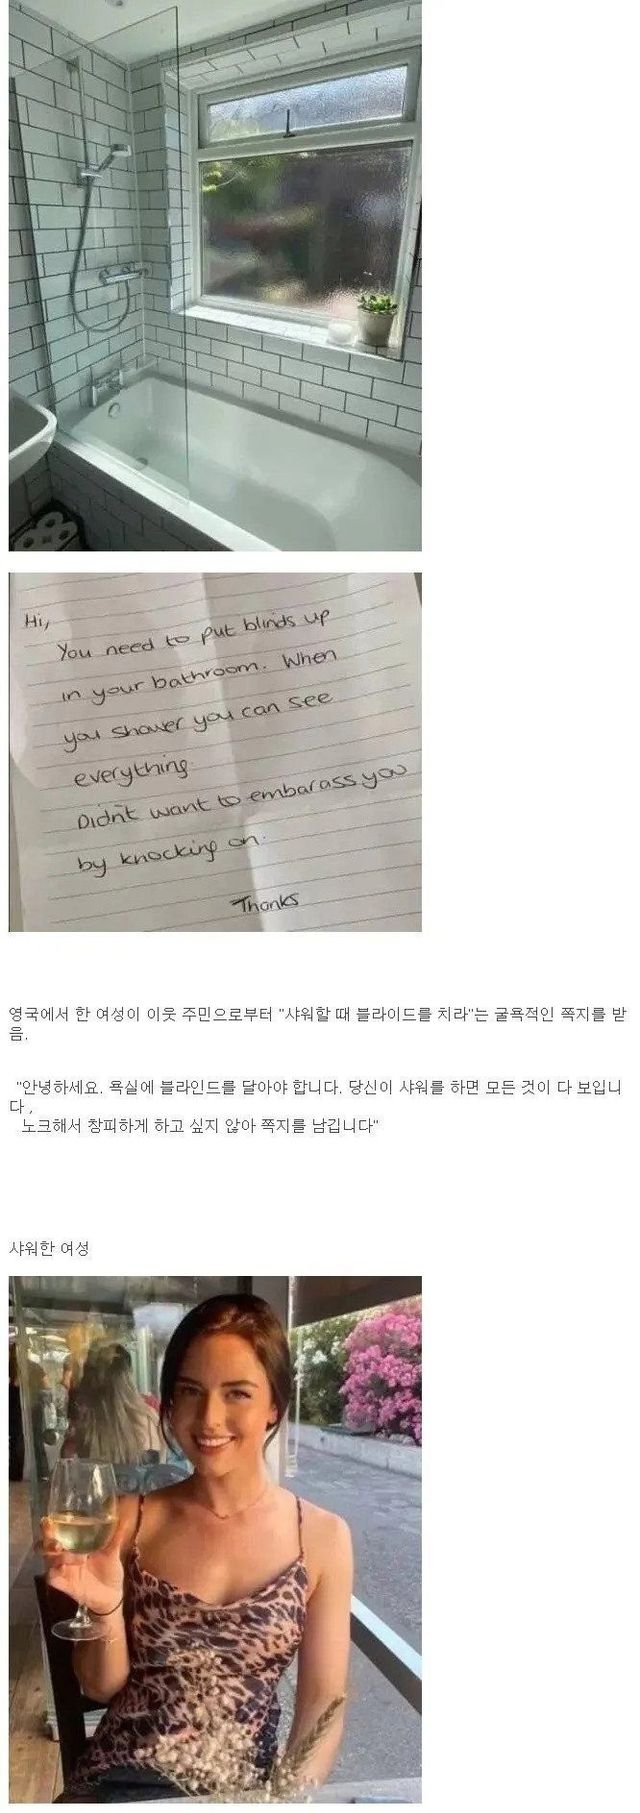 Hi,
You need to put blinds up
in your bathroom. When
you shower you can see
everything.
Didn't want to embarass you
by knocking on.
Thanks
영국에서 한 여성이 이웃 주민으로부터 "샤워할 때 블라이드를 치라"는 굴욕적인 쪽지를 받
음.
"안녕하세요. 욕실에 블라인드를 달아야 합니다. 당신이 샤워를 하면 모든 것이 다 보입니
다 ,
노크해서 창피하게 하고 싶지 않아 쪽지를 남깁니다"
샤워한 여성